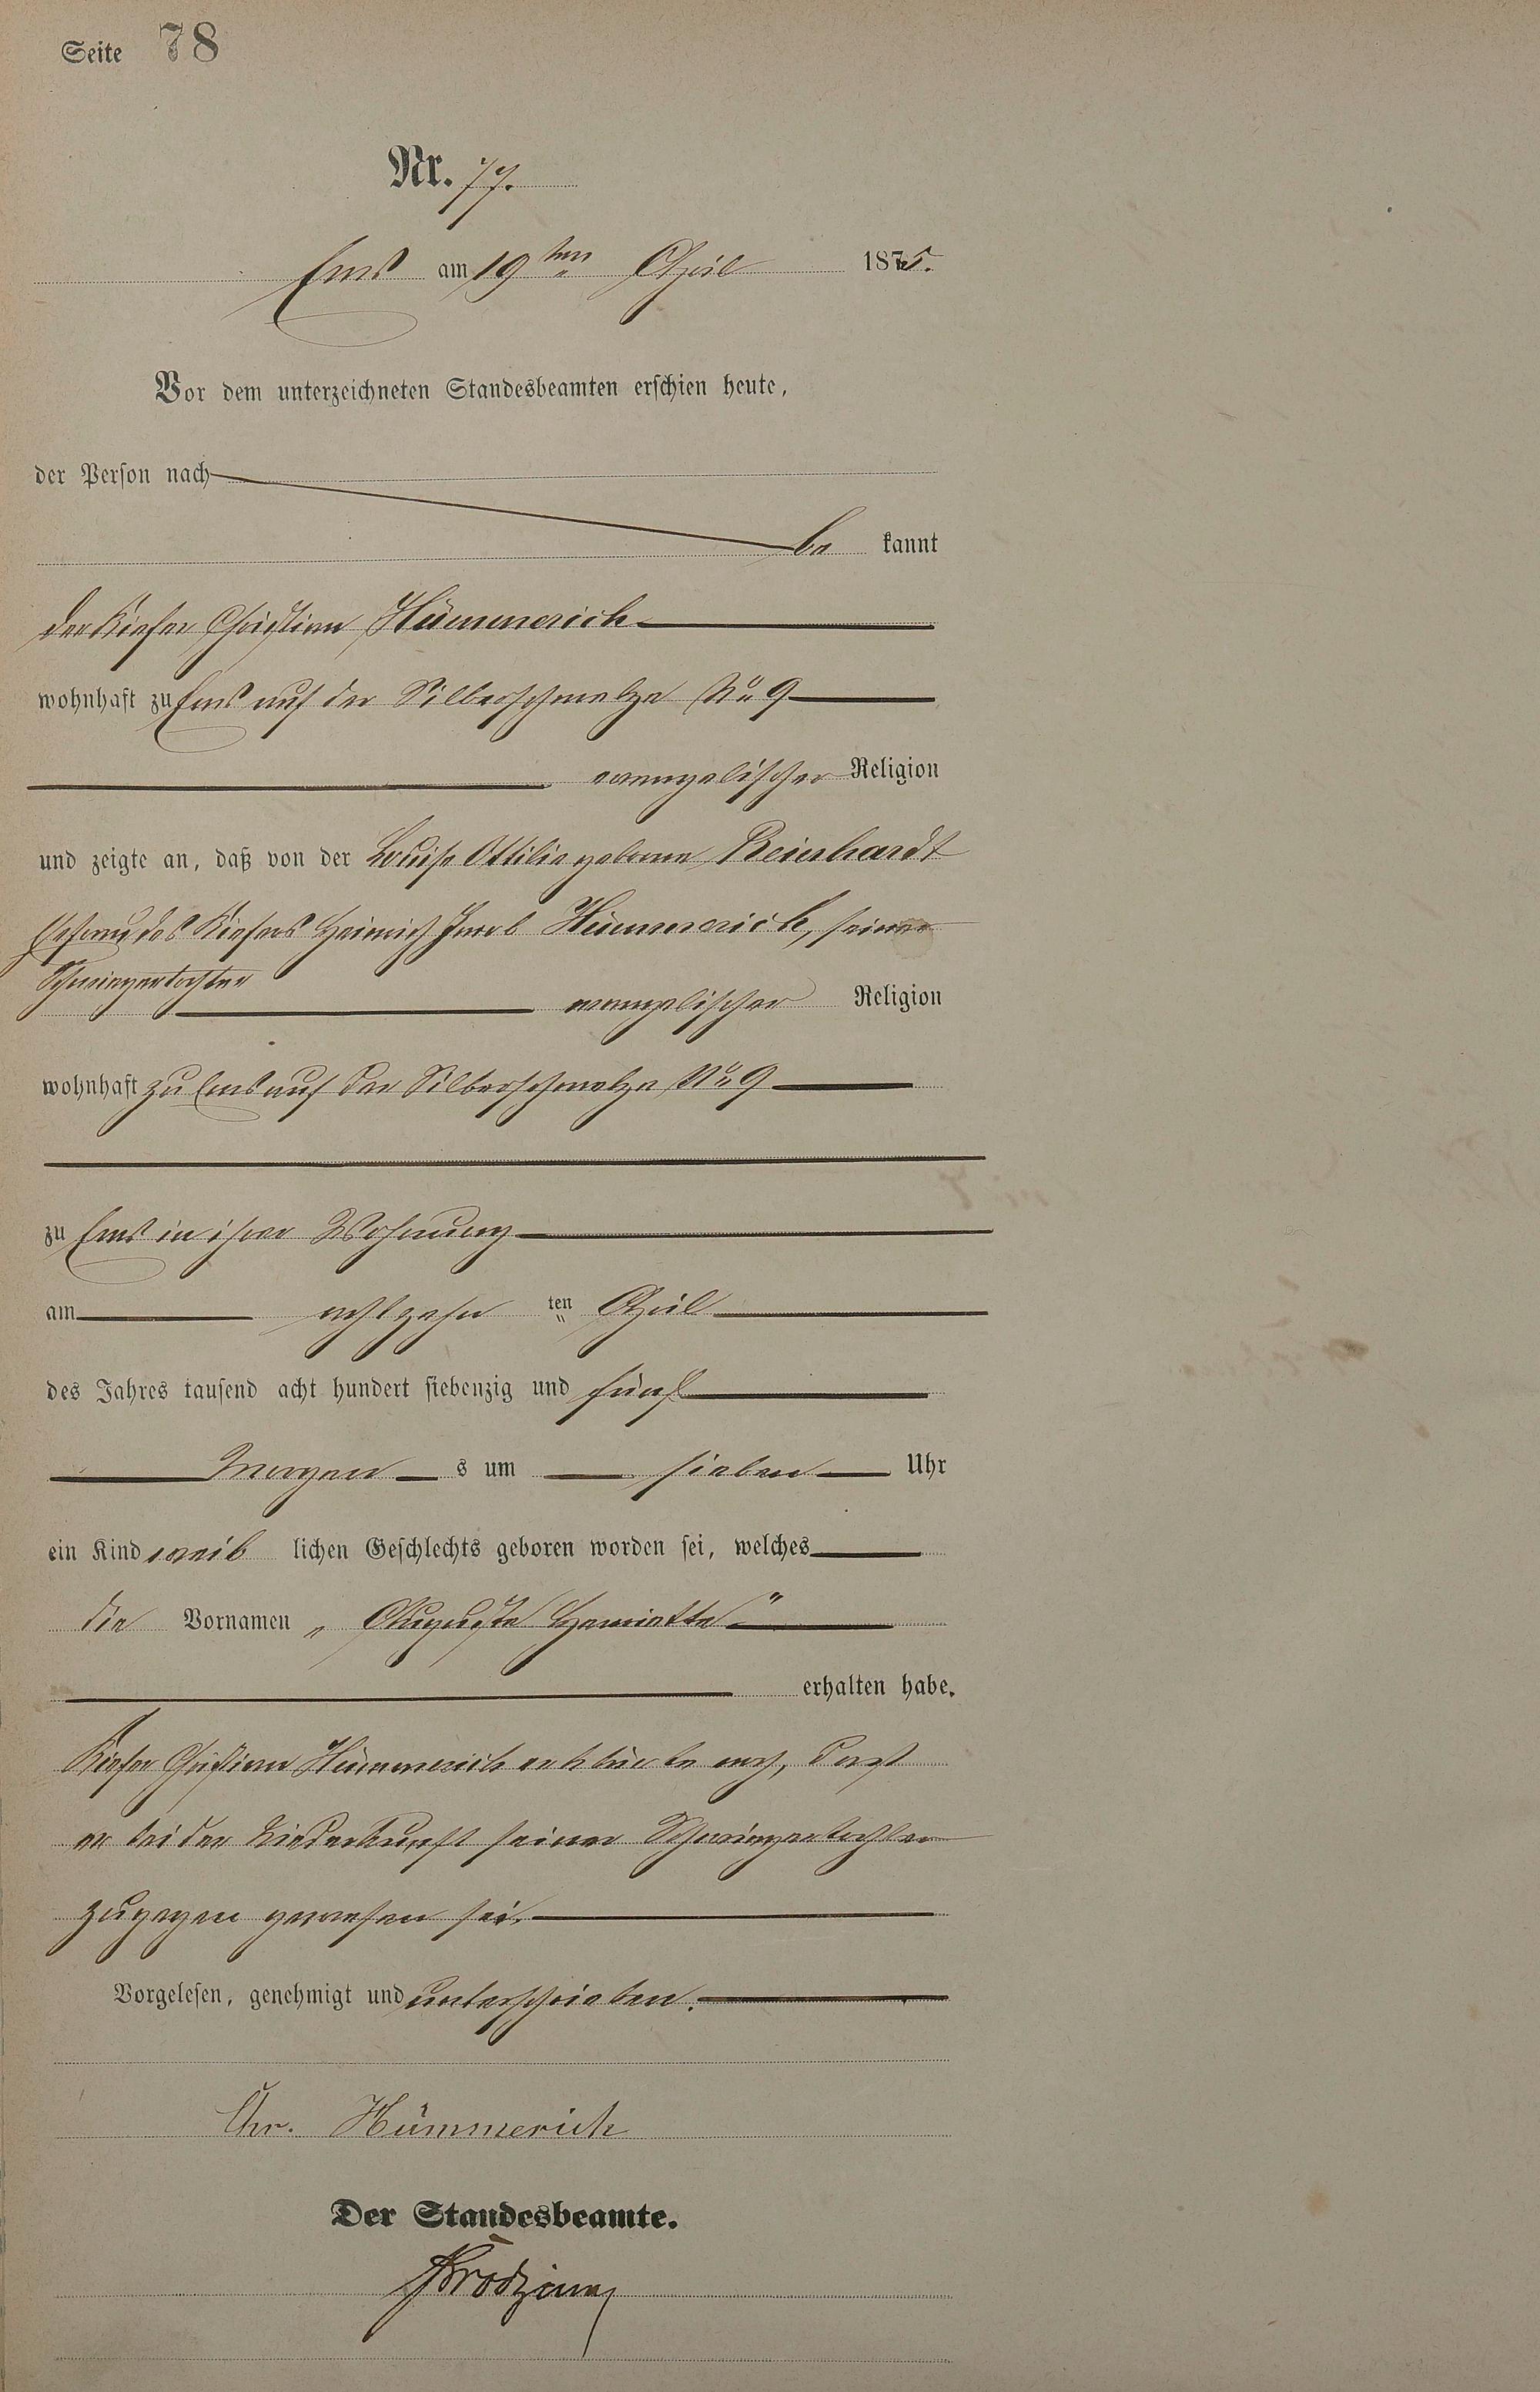 Seite 78
Nr. 77.
Ems am 19ten April 1875.
Vor dem unterzeichneten Standesbeamten erschien heute,
der Person nach
be kannt
der Kiefer Christian Hümmerich
wohnhaft zu Ems auf der Silberschmelze No 9
evangelischer Religion
und zeigte an, daß von der Louise Ottilie geborene Reinhardt
Ehefrau des Kiefers Heinrich Jacob Hümmerich, seiner
Schwiegertochter evangelischer Religion
wohnhaft zu Ems auf der Silberschmelze No 9
zu Ems in ihrer Wohnung
am achtzehn ten April
des Jahres tausend acht hundert siebenzig und fünf
Morgen s um sieben Uhr
ein Kind weib lichen Geschlechts geboren worden sei, welches
die Vornamen „Auguste Henriette"
erhalten habe.
Kiefer Christian Hümmerich erklärte noch, dass
er bei der Niederkunft seiner Schwiegertochter
zugegen gewesen sei.
Vorgelesen, genehmigt und unterschrieben.
Chr. Hümmerich
Der Standesbeamte.